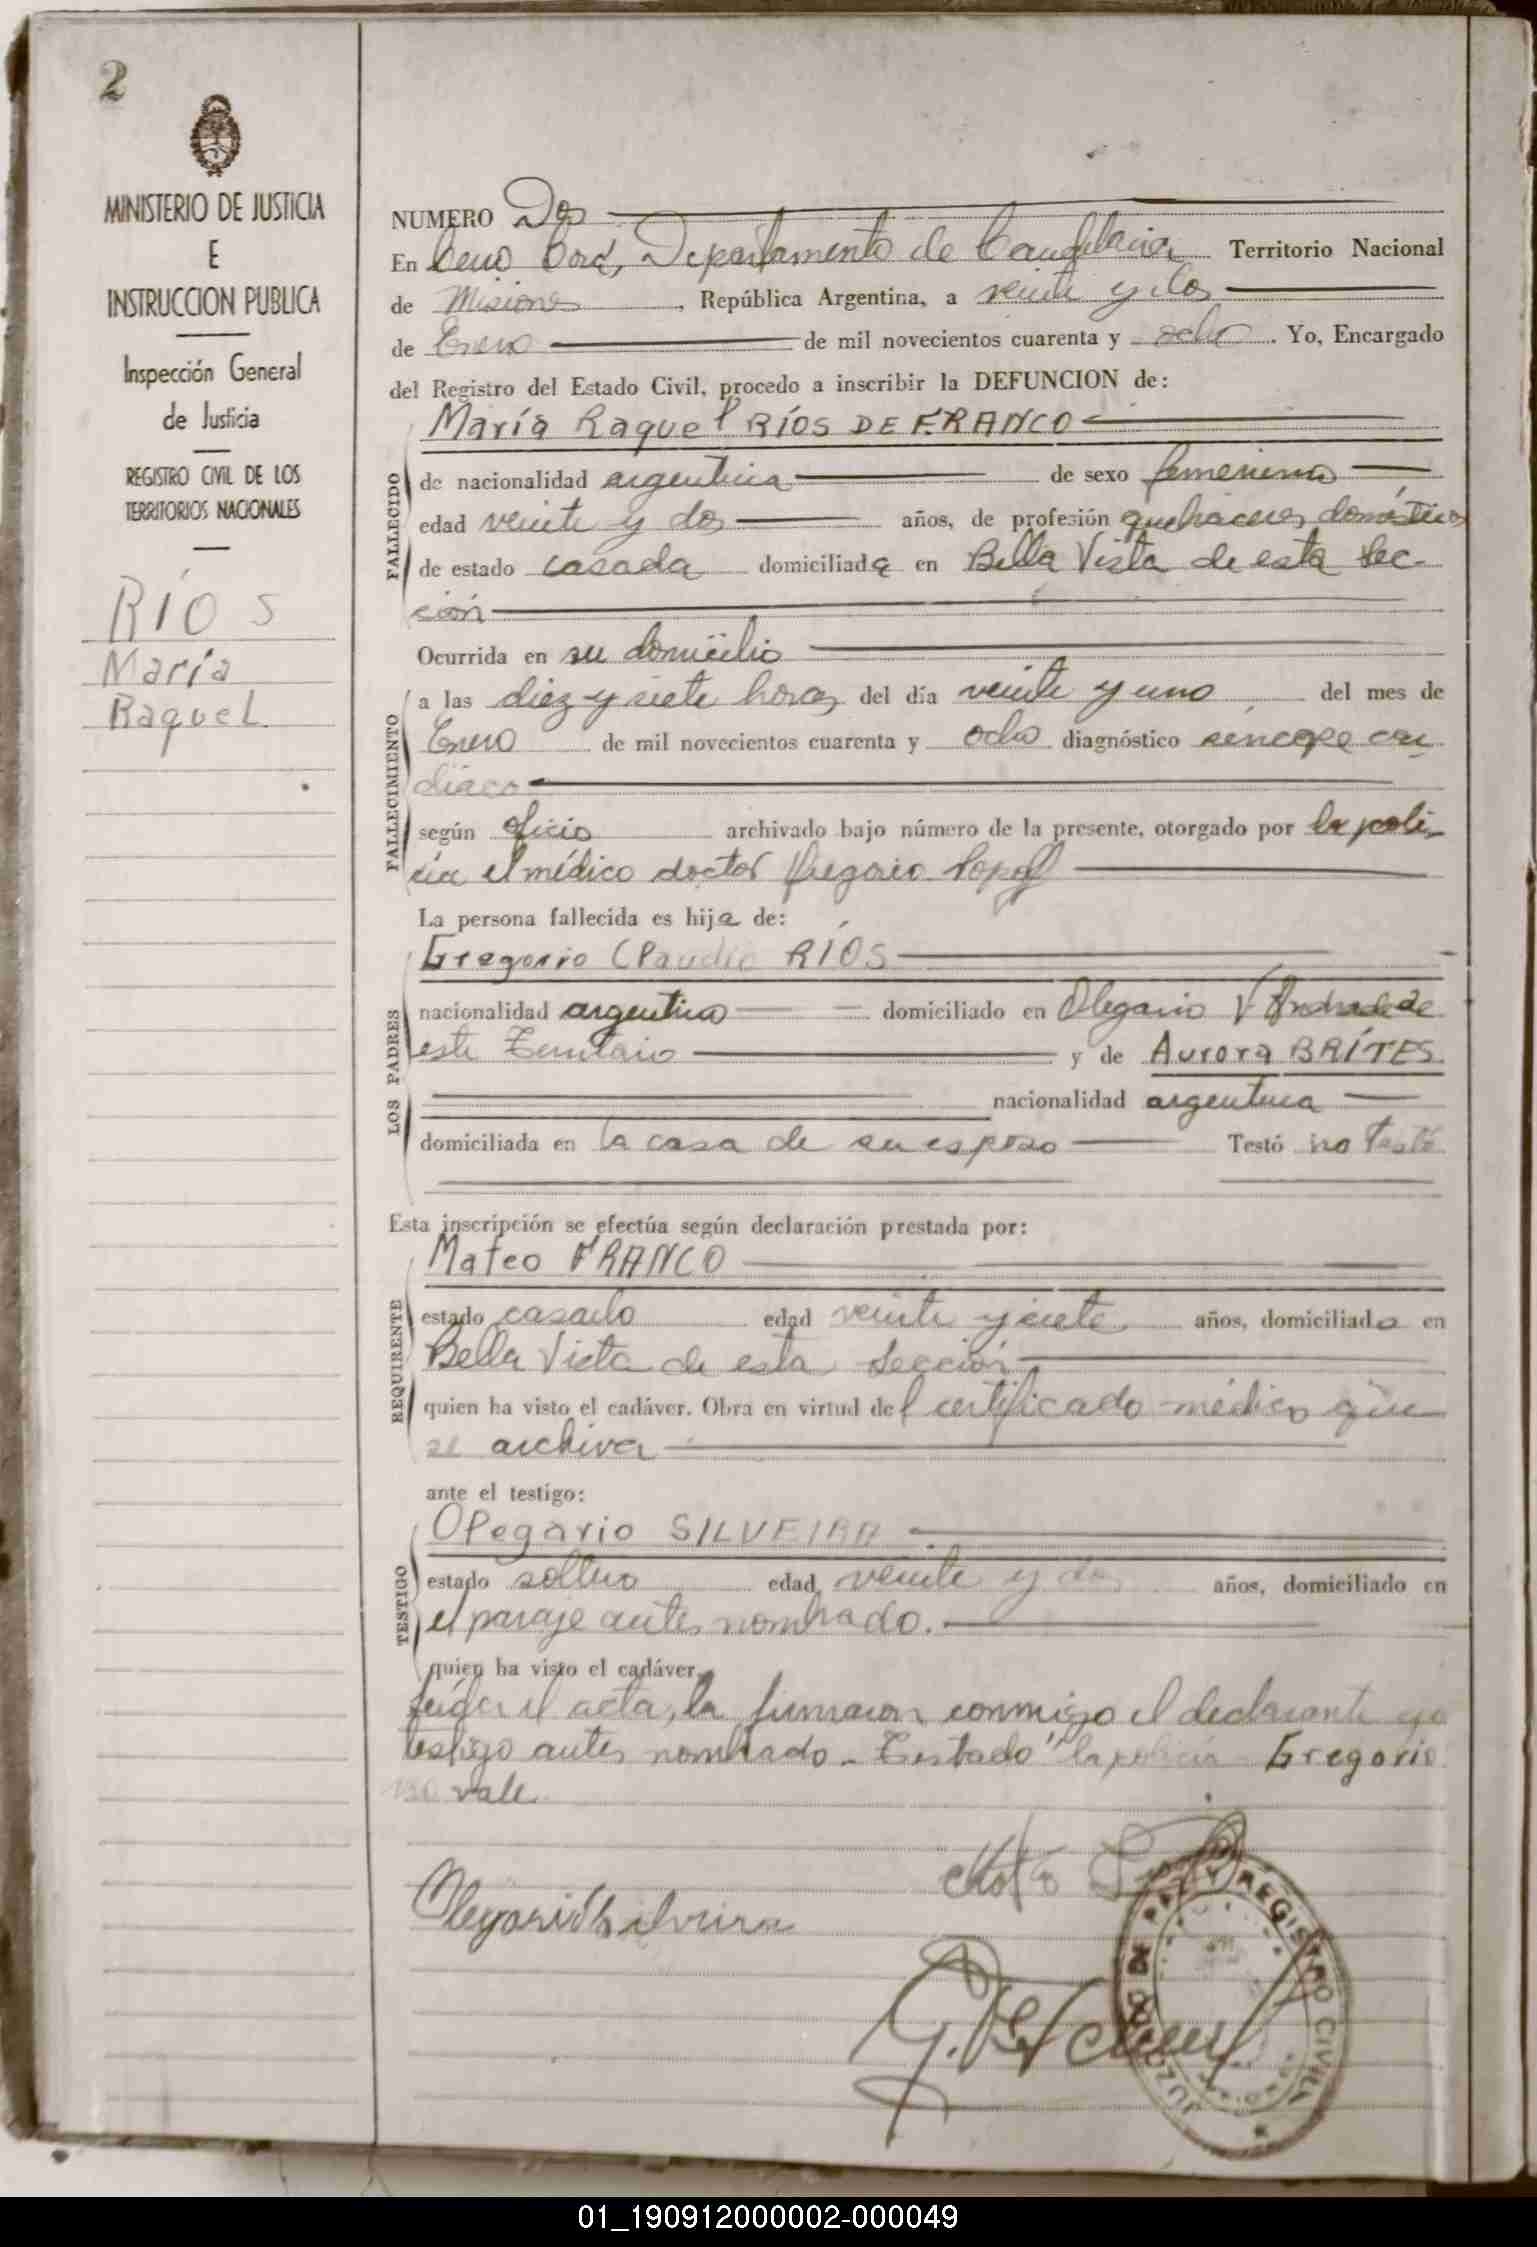 2
MINISTERIO DE JUSTICIA
E
INSTRUCCION PUBLICA
Inspección General
de Justicia
REGISTRO CIVIL DE LOS
TERRITORIOS NACIONALES
RÍOS
María
Raquel
NUMERO Dos
En Cerro Corá, Departamento de Candelaria Territorio Nacional
de Misiones, República Argentina, a veinte y dos
de Enero de mil novecientos cuarenta y ocho. Yo, Encargado
del Registro del Estado Civil, procedo a inscribir la DEFUNCION de:
María Raquel RÍOS DE FRANCO
FALLECIDO
de nacionalidad argentina de sexo femenino
edad veinte y dos años, de profesión quehaceres domésticos
de estado casada domiciliada en Bella Vista de esta Sec-
ción
Ocurrida en su domicilio
FALLECIMIENTO
a las diez y siete horas del día veinte y uno del mes de
Enero de mil novecientos cuarenta y ocho diagnóstico síncope car
díaco
según oficio archivado bajo número de la presente, otorgado por la poli-
cía el médico doctor
La persona fallecida es hija de:
Gregorio Claudio RÍOS
LOS PADRES
nacionalidad argentino domiciliado en Olegario V Andrade de
este Territorio y de Aurora BRÍTES
nacionalidad argentina
domiciliada en la casa de su esposo Testó no Testó
Esta inscripción se efectúa según declaración prestada por:
Mateo FRANCO
REQUIRENTE
estado casado edad veinte y siete años, domiciliado en
Bella Vista de esta Sección
quien ha visto el cadáver. Obra en virtud del certificado médico que
se archiva
ante el testigo:
Olegario SILVEIRA
TESTIGO
estado soltero edad veinte y dos años, domiciliado en
el paraje antes nombrado.
quien ha visto el cadáver.
Leída el acta, la firmaron conmigo el declarante y el
testigo antes nombrado - Testado "la policía Gregorio
no vale
Olegario Silveira
JUZGADO DE PAZ Y REGISTRO CIVIL
01_190912000002-000049